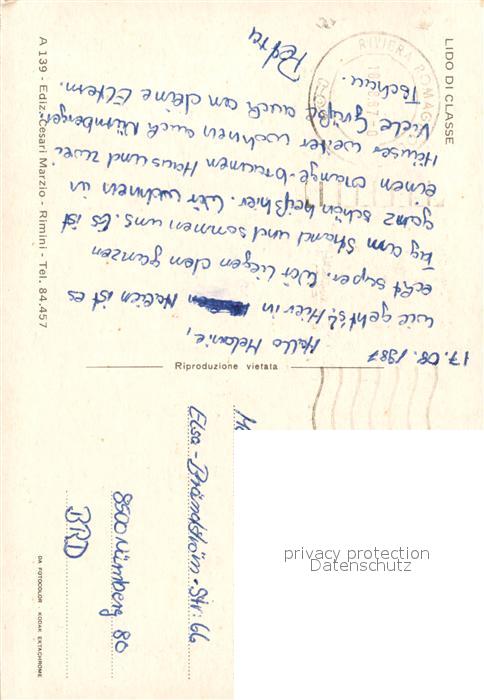 LIDO DI CLASSE
RIVIERA ROMAG
17.08.1987
Hallo Melanie,
wie geht's? Hier in Italien ist es
echt super. Wir liegen den ganzen
Tag am Strand und sonnen uns. Es ist
ganz schön heiß hier. Wir wohnen in
einen orange-braunen Haus und zwei
Häuser weiter wohnen auch Nürnberger.
Viele Grüße auch an deine Eltern.
Tschau.
Petra
A 139 - Ediz. Cesari Marzio - Rimini - Tel. 84.457
Riproduzione vietata
Elsa-Brändström-Str. 66
8500 Nürnberg 80
BRD
DA FOTOCOLOR - KODAK EKTACHROME
privacy protection
Datenschutz